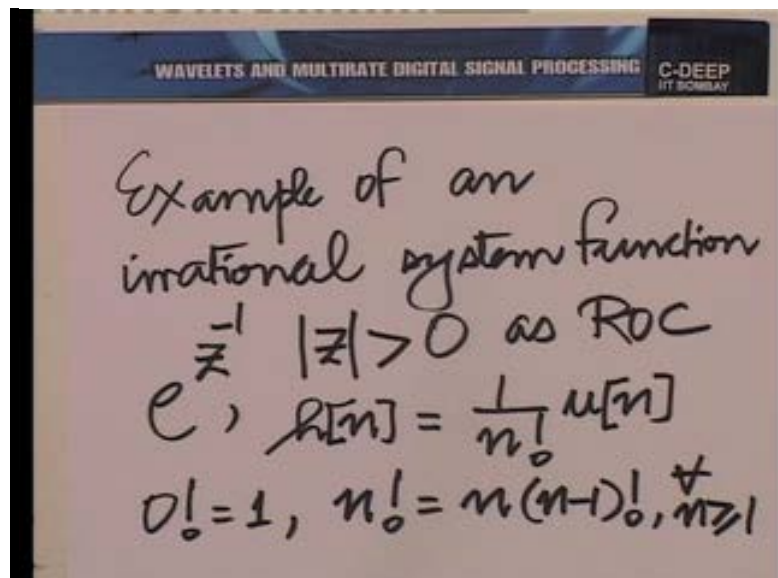 WAVELETS AND MULTIRATE DIGITAL SIGNAL PROCESSING
C-DEEP
IIT BOMBAY
Example of an
irrational system function
e^{z^{-1}}, |z|>0 as ROC
h[n] = \frac{1}{n!} u[n]
0! = 1, n! = n(n-1)!, ∀ n≥1